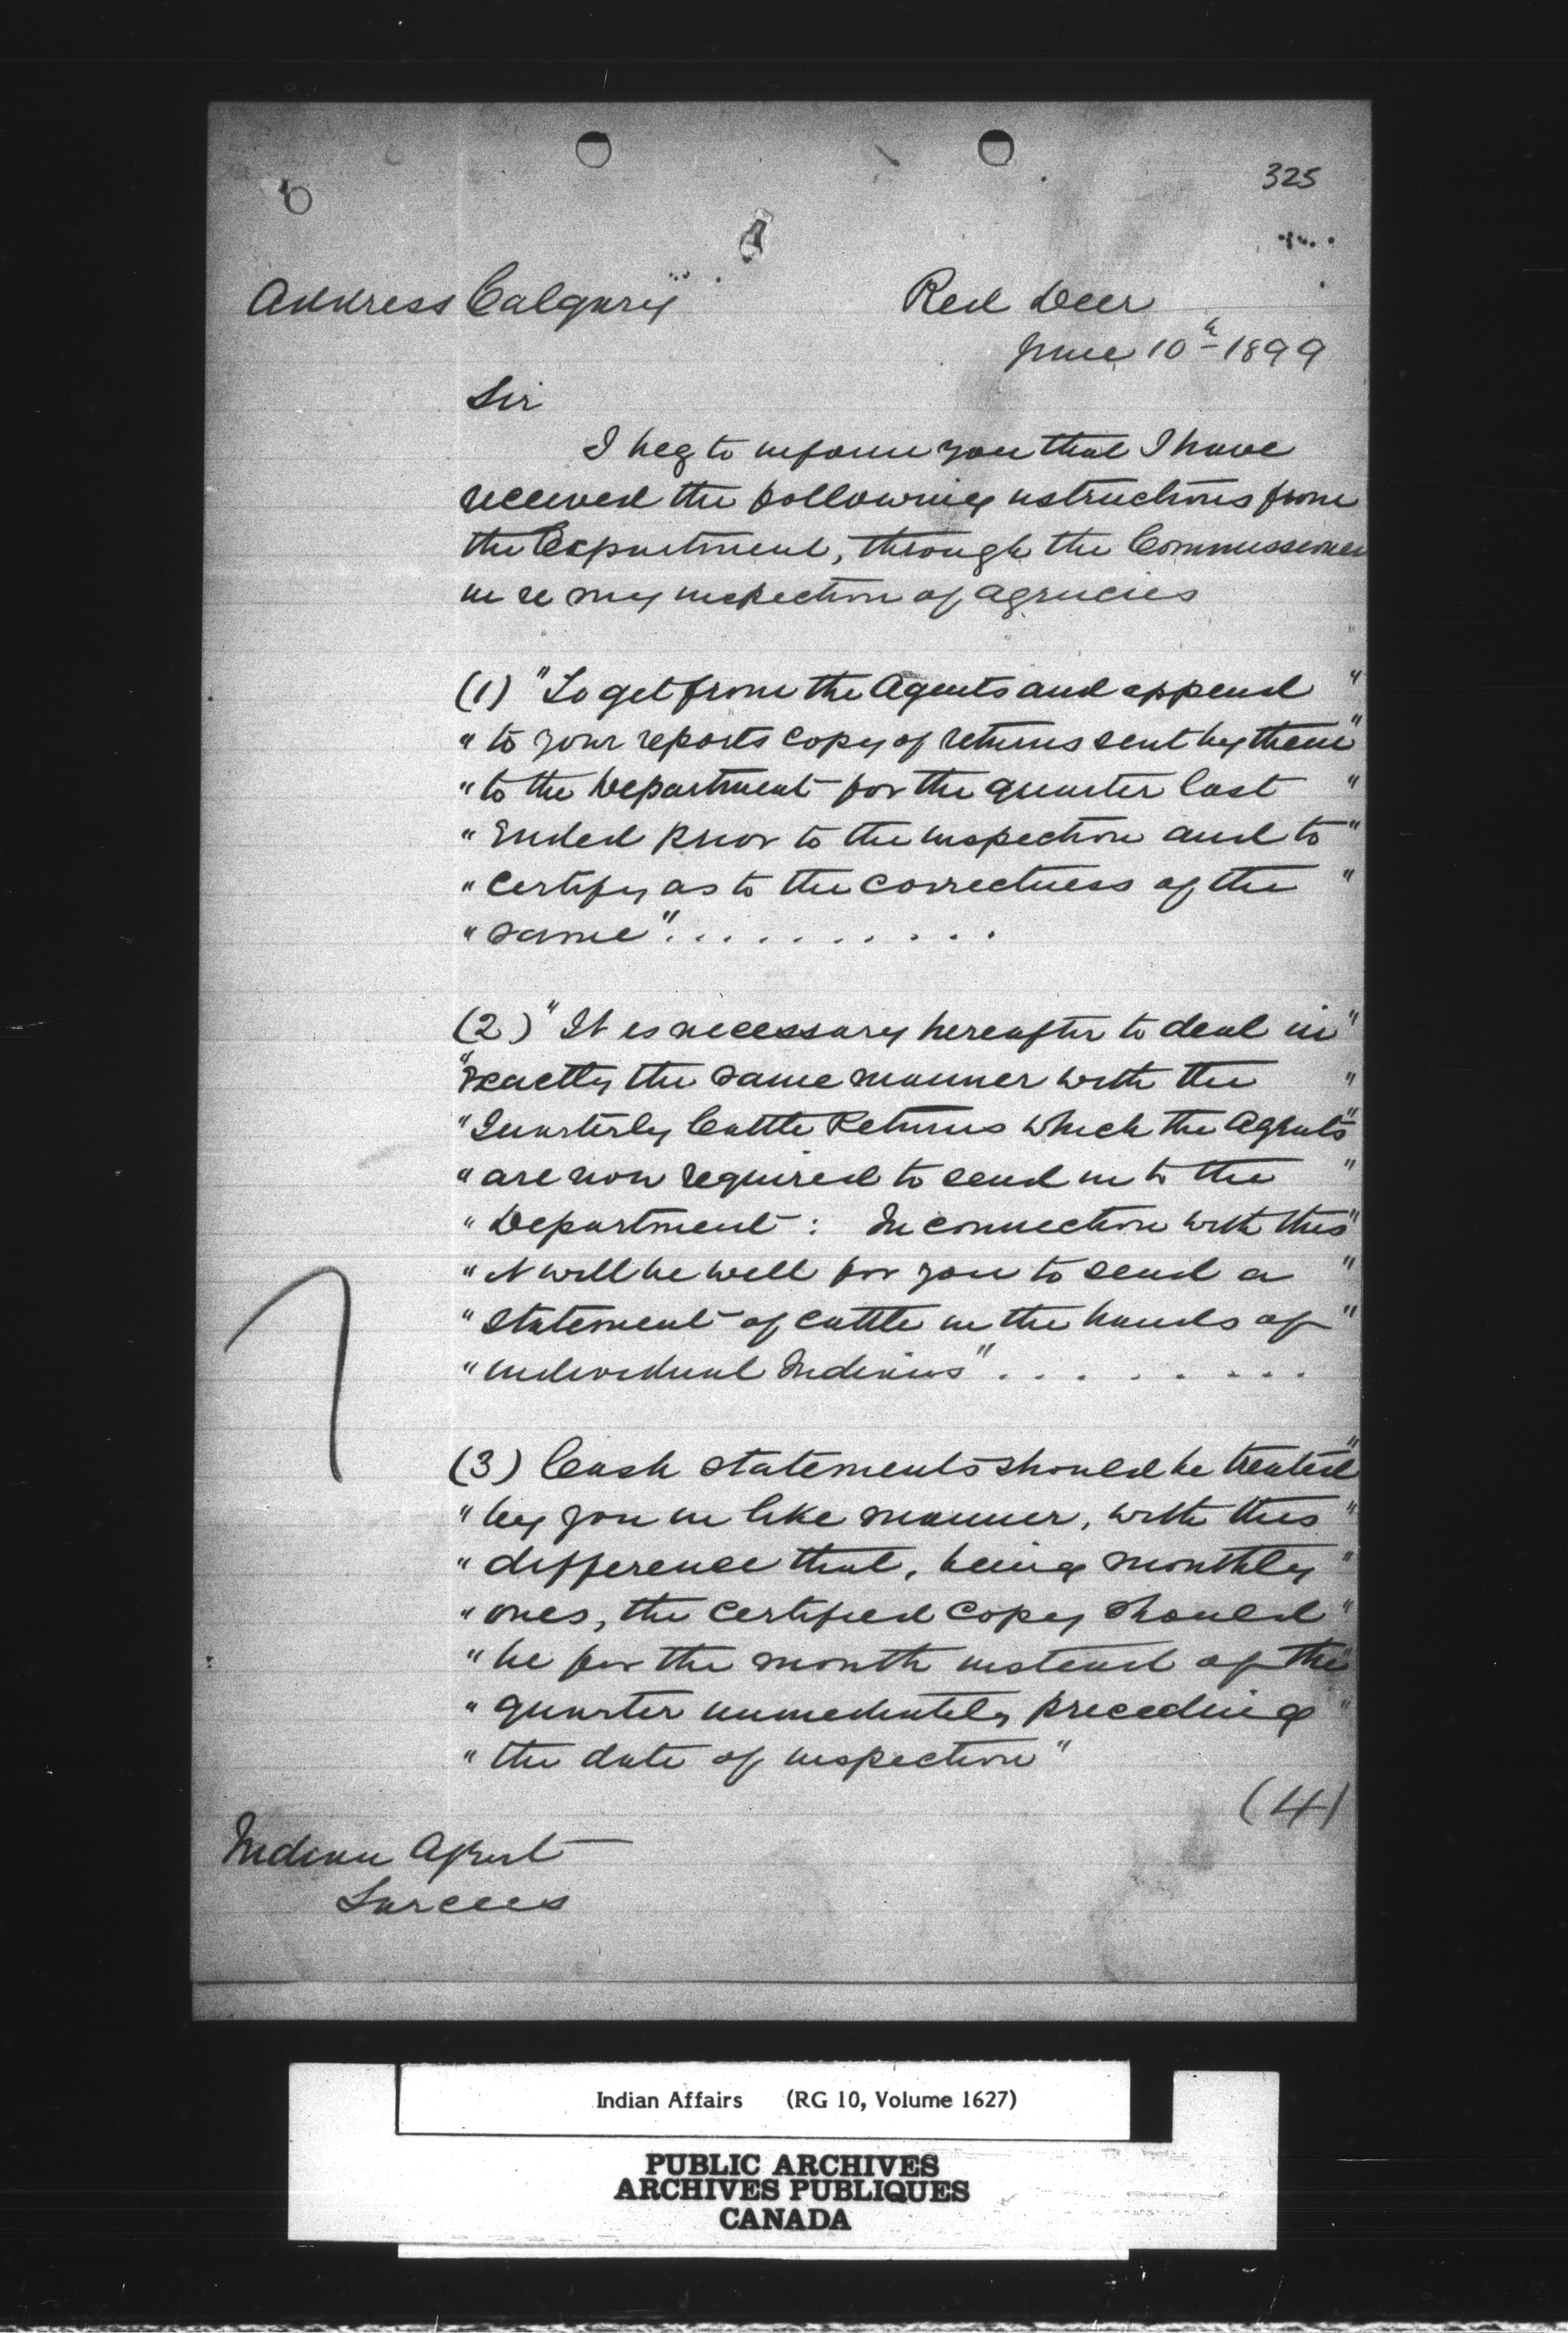 325
Address Calgary
Red Deer
June 10th 1899
Sir
I beg to inform you that I have
received the following nstructions from
the Department, through the Commissioner
in re my inspection of agencies
(1) "To get from the Agents and append "
" to your reports copy of returns sent by them "
" to the Department for the quarter last "
" Ended prior to the inspection and to "
" Certify as to the correctness of the "
" same" . . . . . . . . . .
(2) " It is necessary hereafter to deal in "
" exactly the same manner with the "
" Quarterly Cattle Returns which the Agents "
" are now required to send in to the "
" Department : In connection with this "
" it will be well for you to send a "
" statement of cattle in the hands of "
" individual Indians" . . . . . . . .
(3) Cash statements should be treated "
" by you in like manner, with this "
" difference that, being monthly "
" ones, the certified copy should "
" be for the month instead of the "
" quarter immediately preceding "
" the date of inspection "
(4)
Indian Agent
Sarcees
Indian Affairs (RG 10, Volume 1627)
PUBLIC ARCHIVES
ARCHIVES PUBLIQUES
CANADA